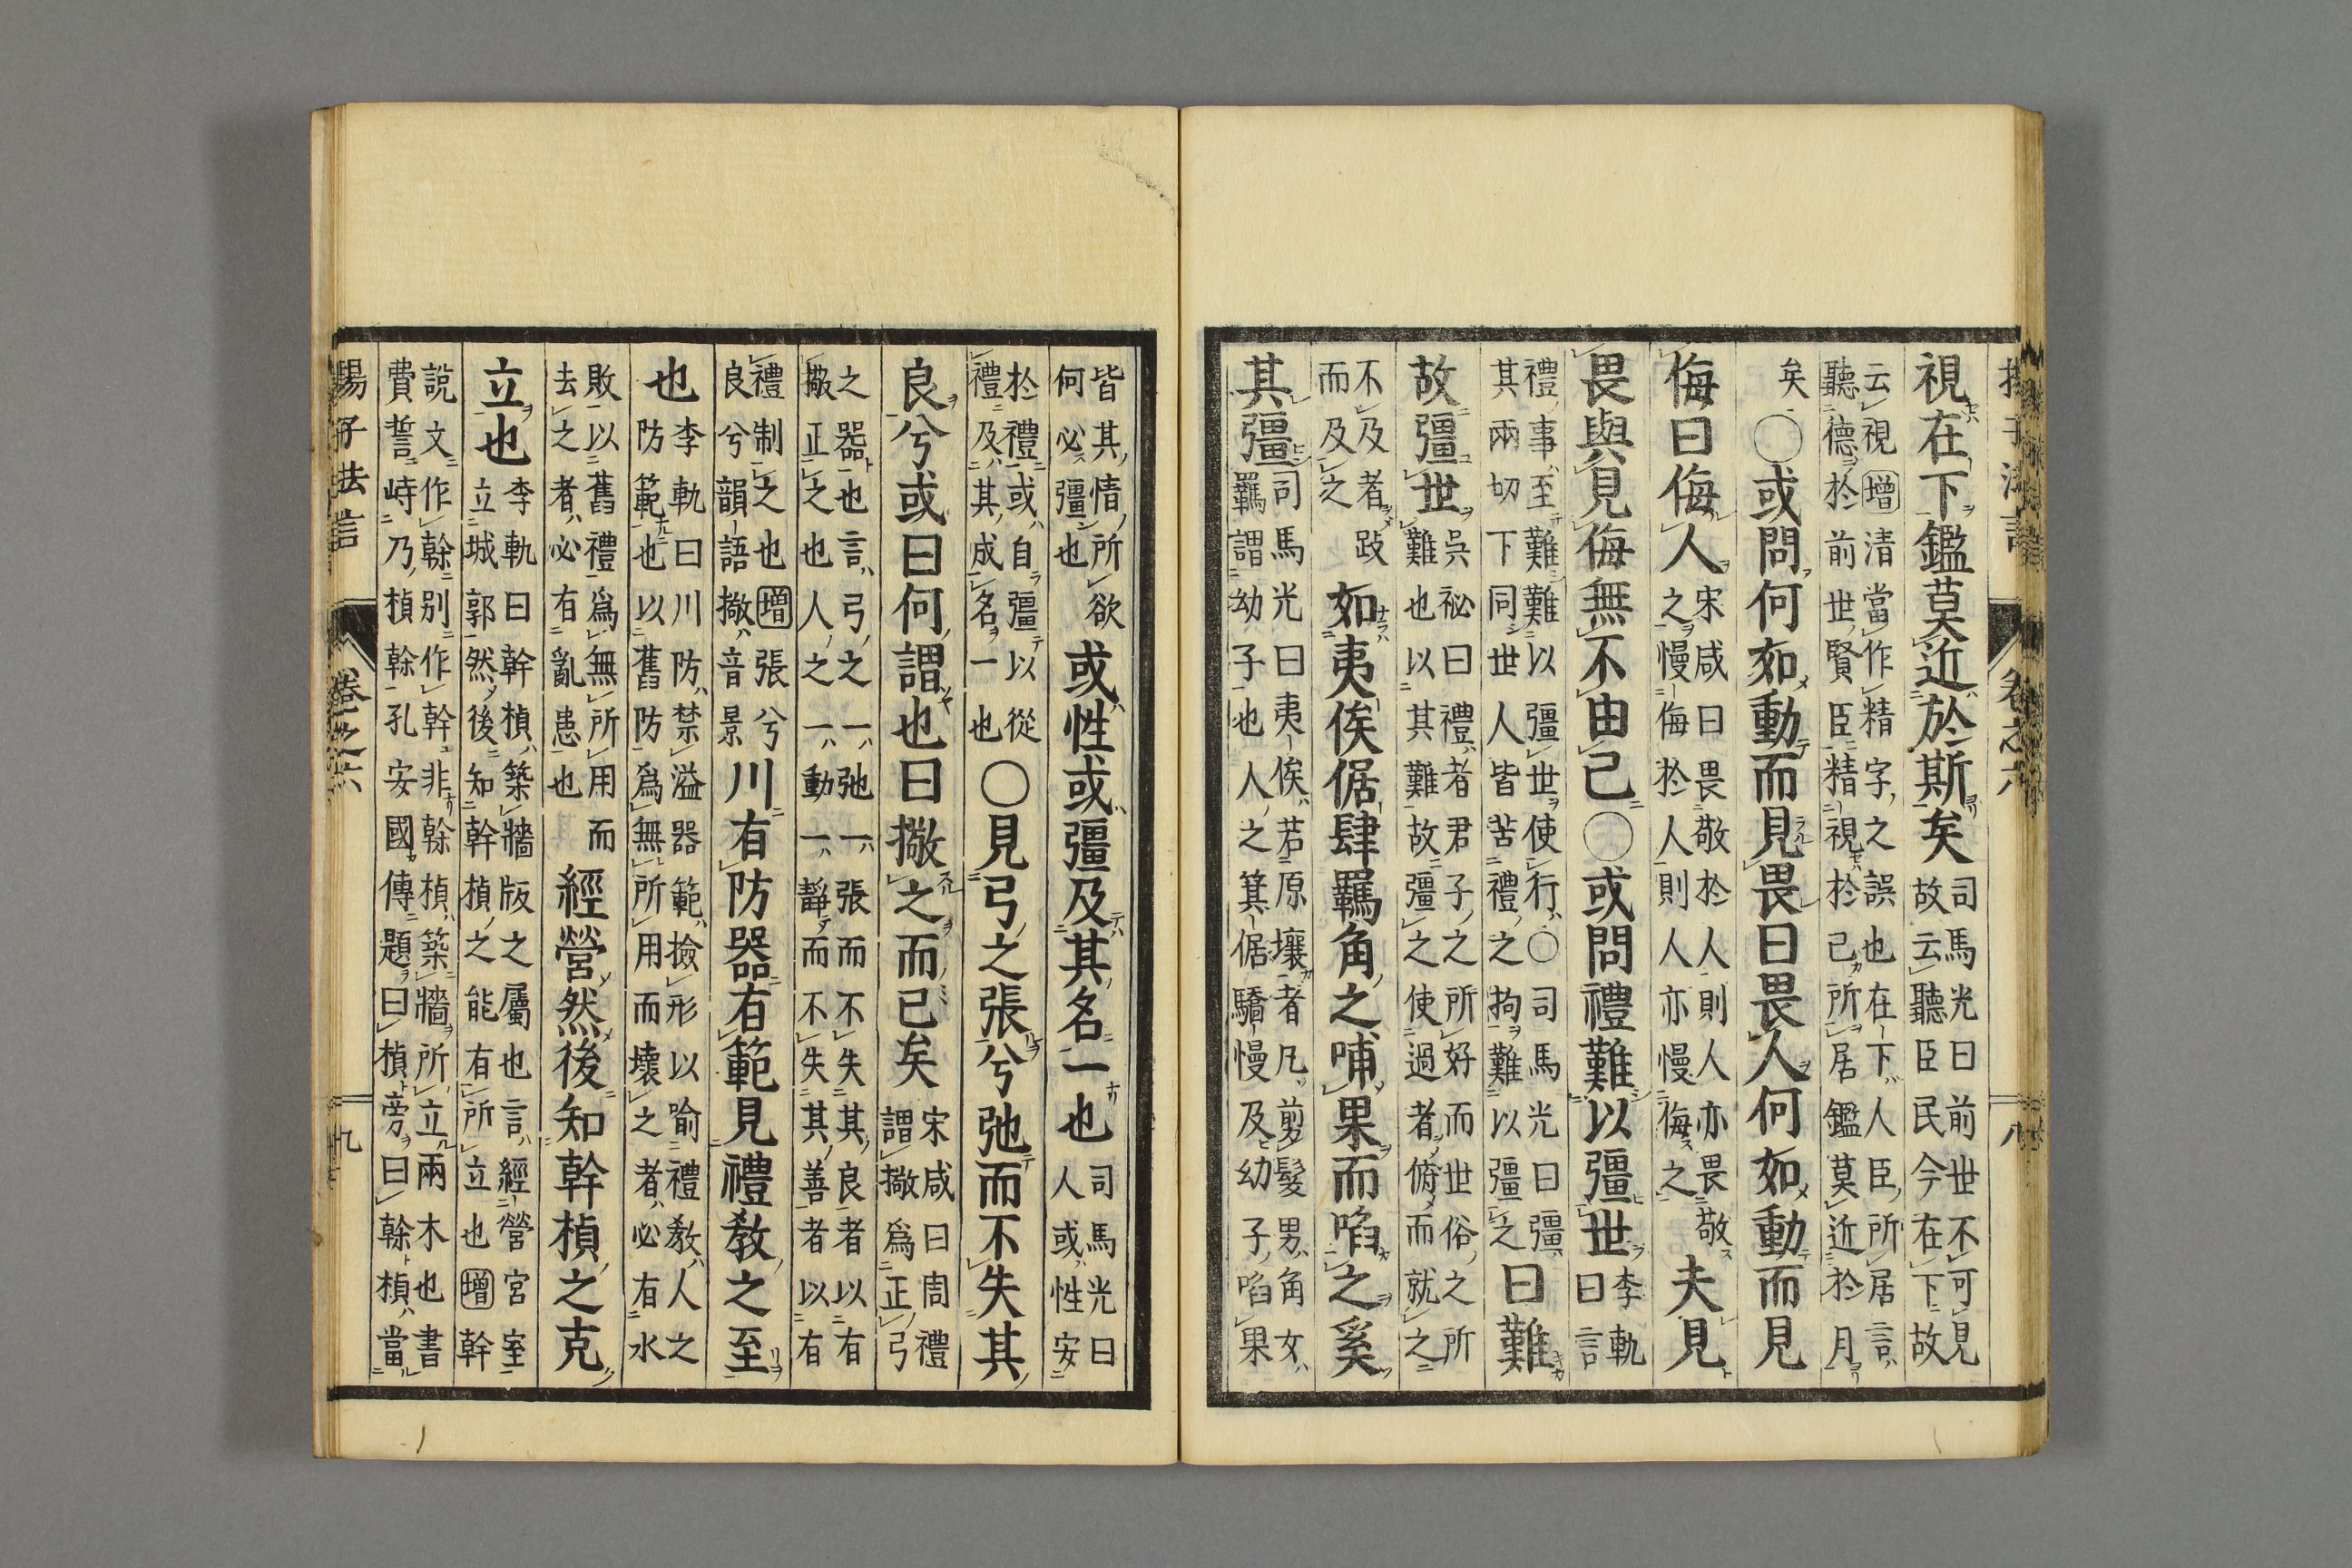 揚子法言　卷之六　八
視在下鑑莫近於斯矣
司馬光曰前世不可見
故云聽臣民今在下故
云視增清當作精字之誤也在下人臣所居言
聽德於前世賢臣精視於己所居鑑莫近於月
矣○或問何如動而見畏曰畏人何如動而見
侮曰侮人
宋咸曰畏敬於人則人亦畏敬
之慢侮於人則人亦慢侮之
夫見
畏與見侮無不由己○或問禮難以彊世
李軌
曰言
禮事至難難以彊世使行○司馬光曰彊
其兩切下同世人皆苦禮之拘難以彊之
曰難
故彊世
吳祕曰禮者君子之所好而世俗之所
難也以其難故彊之使過者俯而就之
不及者跂
而及之
如夷俟倨肆羈角之哺果而啗之奚
其彊
司馬光曰夷俟若原壤者凡剪髮男角女
羈謂幼子也人之箕倨驕慢及幼子啗果
皆其情所欲
何必彊也
或性或彊及其名一也
司馬光曰
人或性安
於禮或自彊以從
禮及其成名一也
○見弓之張兮弛而不失其
良兮或曰何謂也曰擏之而已矣
宋咸曰周禮
謂擏爲正弓
之器也言弓之一弛一張而不失其良者以有
擏正之也人之一動一靜而不失其善者以有
禮制之也增張兮
良兮韻語擏音景
川有防器有範見禮教之至
也
李軌曰川防禁溢器範撿形以喻禮教人之
防範也以舊防爲無所用而壞之者必有水
敗以舊禮爲無所用而
去之者必有亂患也
經營然後知幹楨之克
立也
李軌曰幹楨築牆版之屬也言經營宮室
立城郭然後知幹楨之能有所立也增幹
說文作榦別作幹非榦楨築牆所立兩木也書
費誓峙乃楨榦孔安國傳題曰楨旁曰榦楨當
揚子法言　卷之六　九